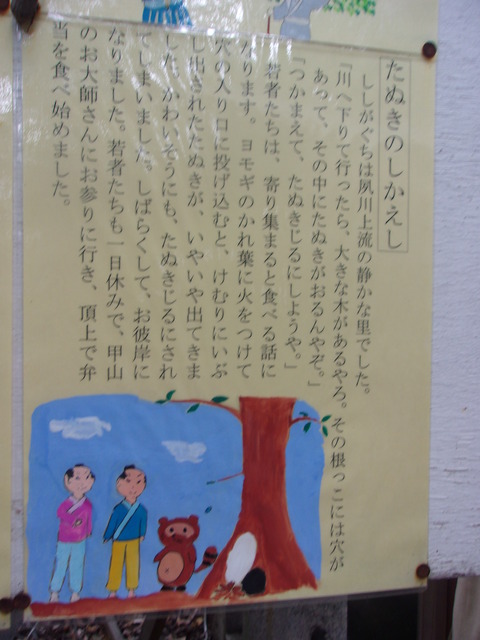 たぬきのしかえし
ししがぐちは夙川上流の静かな里でした。
「川へ下りて行ったら、大きな木があるやろ。その根っこには穴が
あって、その中にたぬきがおるんやぞ。」
「つかまえて、たぬきじるにしようや。」
若者たちは、寄り集まると食べる話に
なります。ヨモギのかれ葉に火をつけて
穴の入り口に投げ込むと、けむりにいぶ
し出されたたぬきが、いやいや出てきま
した。かわいそうにも、たぬきじるにされ
てしまいました。しばらくして、お彼岸に
なりました。若者たちも一日休みで、甲山
のお大師さんにお参りに行き、頂上で弁
当を食べ始めました。